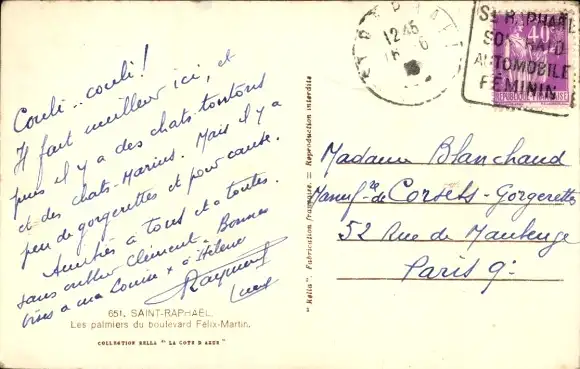 Couli..couli!
Il fait meilleur ici, et
puis il y a des chats-tontons
et des chats-Marius. Mais il y a
peu de gorgerettes et pour cause.
Amitiés à tous et à toutes.
sans oublier Clément. Bonnes
bises a ma Louise x à Hélène
Raymond
651. SAINT-RAPHAËL
Les palmiers du boulevard Félix-Martin.
COLLECTION RELLA "LA COTE D'AZUR"
"Rella". Fabrication Française. = Reproduction interdite
12 45
6
ST RAPHAËL
SON
AUTOMOBILE
FÉMININ
40
REPUBLIQUE
Madame Blanchaud
Manuf re de Corsets-Gorgerettes
52 Rue de Maubeuge
Paris 9e